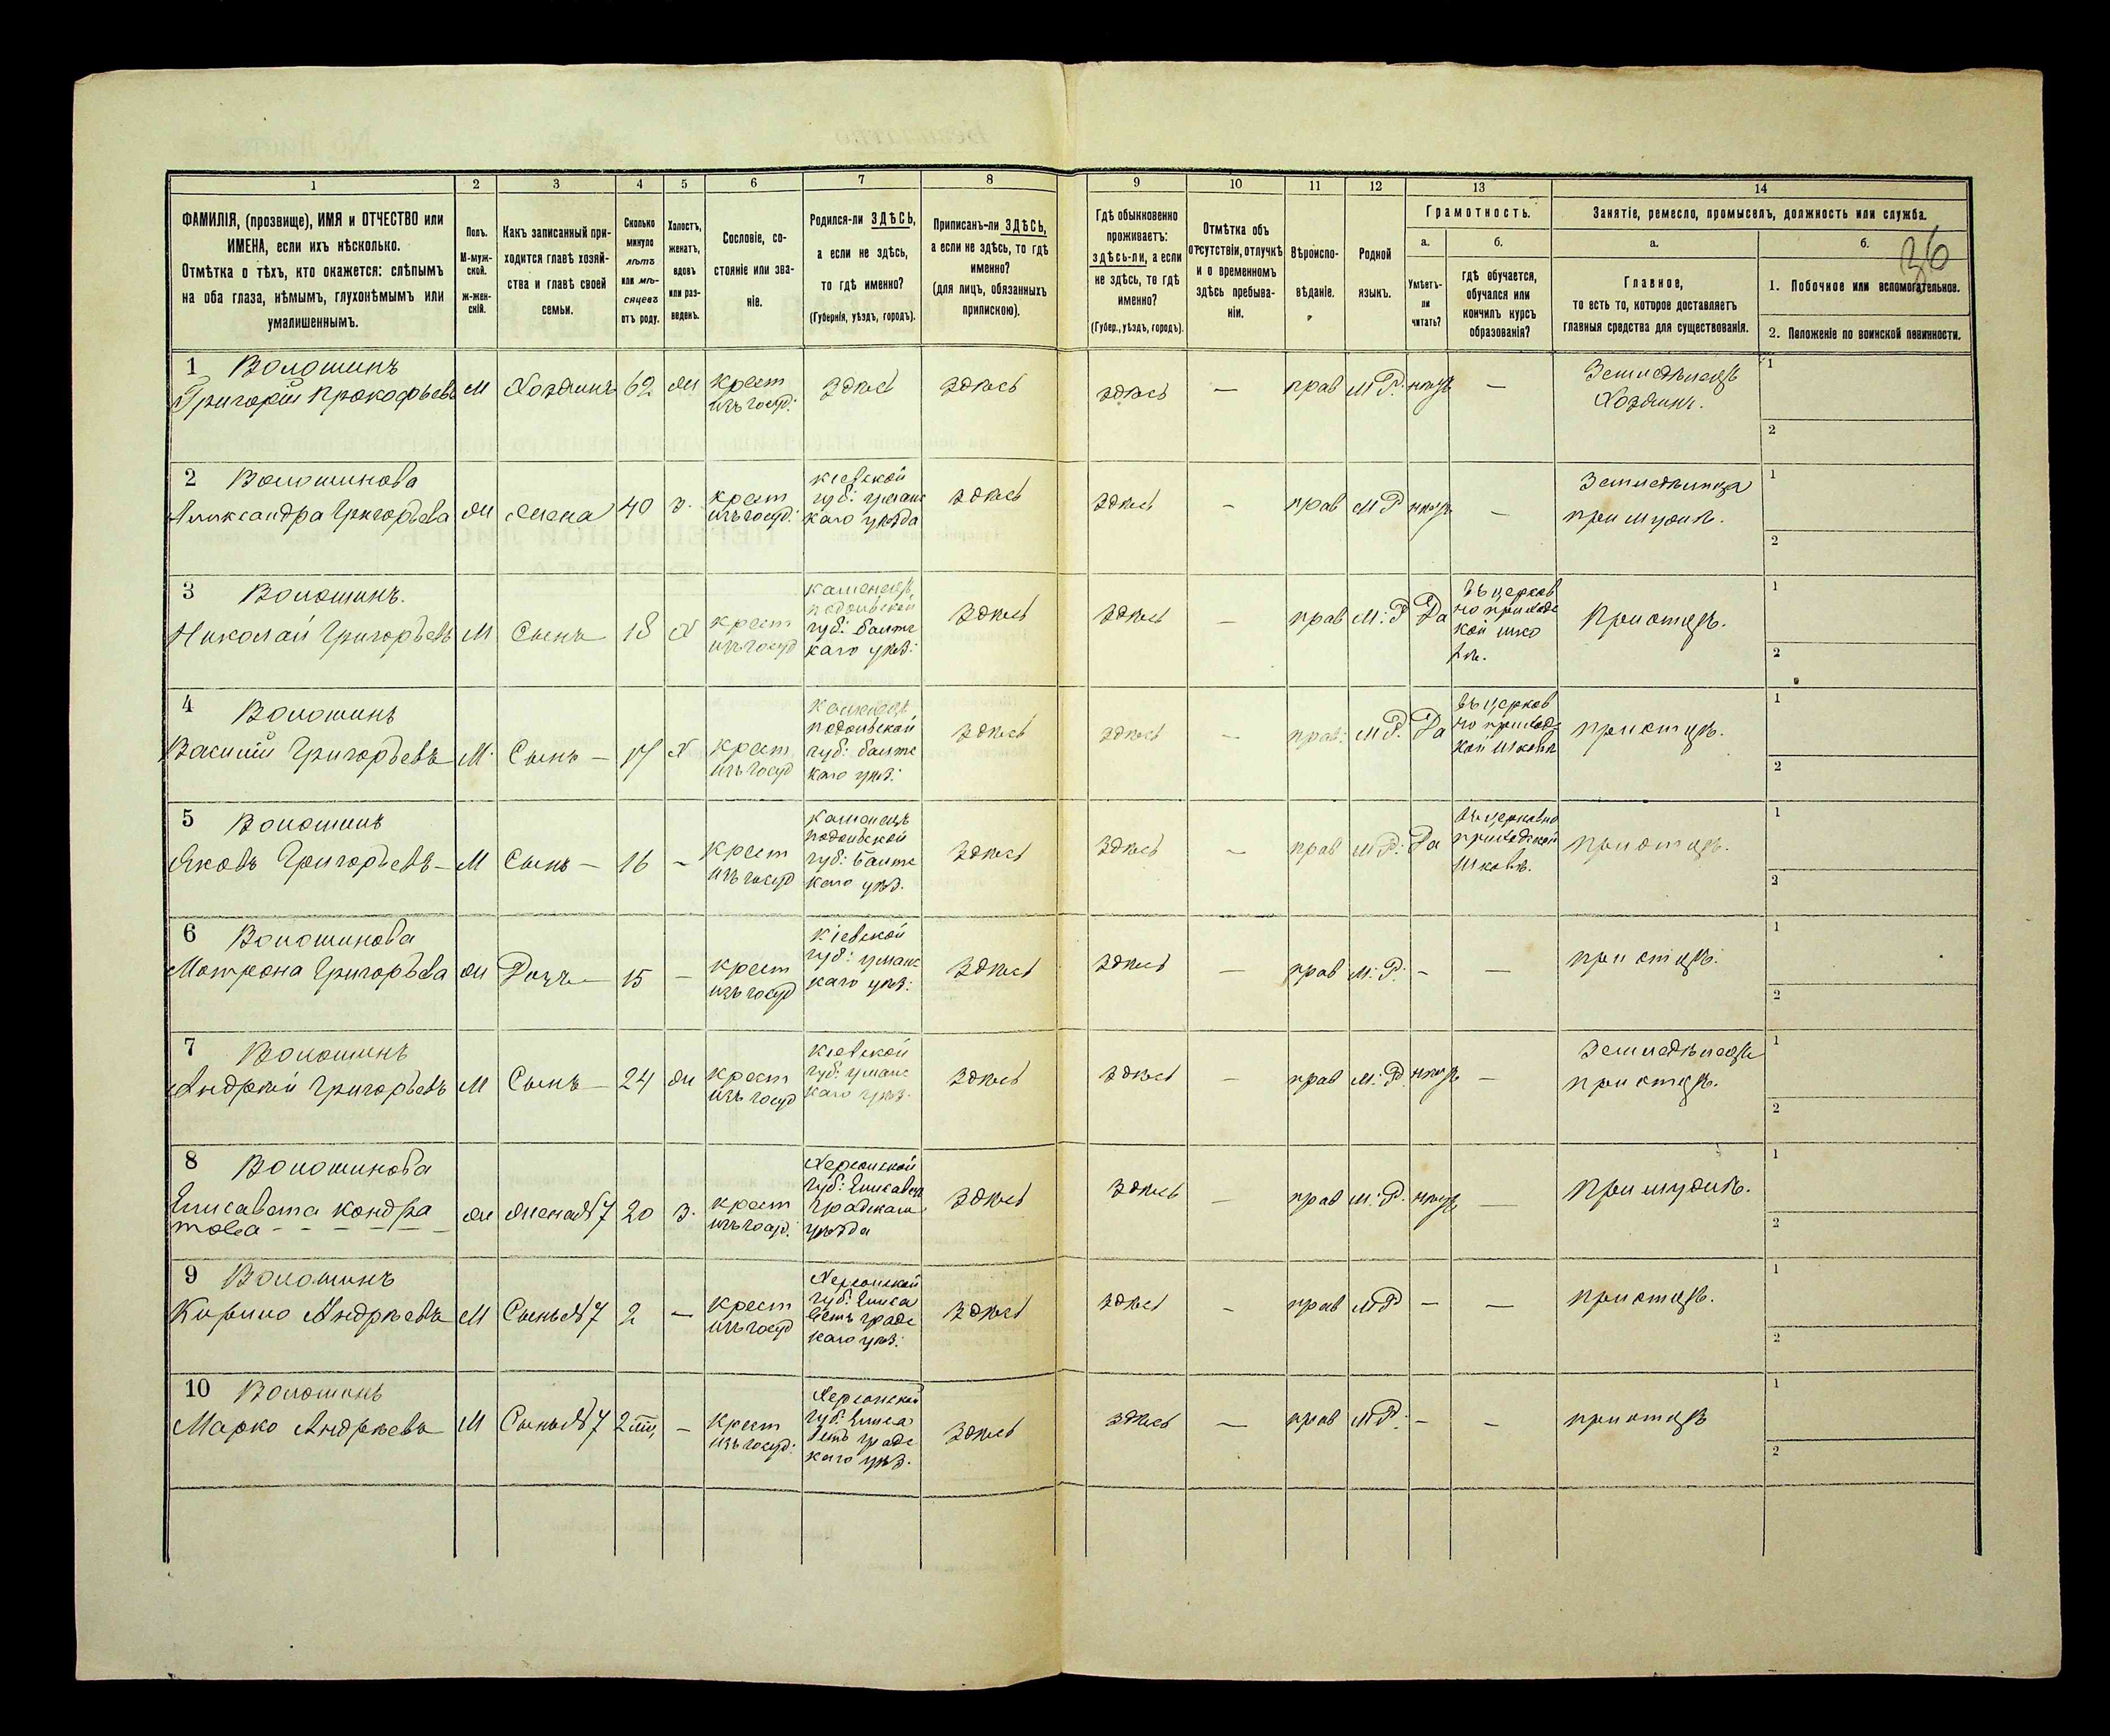 36
1
2
3
4
5
6
7
8
9
10
11
12
13
14
ФАМИЛІЯ, (прозвище), ИМЯ и ОТЧЕСТВО или
ИМЕНА, если ихъ нѣсколько.
Отмѣтка о тѣхъ, кто окажется: слѣпымъ
на оба глаза, нѣмымъ, глухонѣмымъ или
умалишеннымъ.
Полъ.
М-муж-
ской.
ж-жен-
скій.
Какъ записанный при-
ходится главѣ хозяй-
ства и главѣ своей
семьи.
Сколько
минуло
лѣтъ
или мѣ-
сяцевъ
отъ роду.
Холостъ,
женатъ,
вдовъ
или раз-
веденъ.
Сословіе, со-
стояніе или зва-
ніе.
Родился-ли ЗДѢСЬ,
а если не здѣсь,
то гдѣ именно?
(Губернія, уѣздъ, городъ).
Приписанъ-ли ЗДѢСЬ,
а если не здѣсь, то гдѣ
именно?
(для лицъ, обязанныхъ
припискою).
Гдѣ обыкновенно
проживаетъ:
здѣсь-ли, а если
не здѣсь, то гдѣ
именно?
(Губер., уѣздъ, городъ).
Отмѣтка объ
отсутствіи, отлучкѣ
и о временномъ
здѣсь пребыва-
ніи.
Вѣроиспо-
вѣданіе.
Родной
языкъ.
Грамотность.
а.
Умѣетъ-
ли
читать?
б.
гдѣ обучается,
обучался или
кончилъ курсъ
образованія?
Занятіе, ремесло, промыселъ, должность или служба.
а.
Главное,
то есть то, которое доставляетъ
главныя средства для существованія.
б.
1. Побочное или вспомогательное.
2. Положеніе по воинской повинности.
1 Волошинъ
Григорій Прокофьевъ М Хозяинъ 62 ж крест
изъ госуд: здѣсь здѣсь здѣсь — прав М.Р. нѣтъ — Земледѣлецъ
Хозяинъ. 1
2
2 Волошинова
Александра Григорьева ж жена 40 з. крест
изъ госуд: Кіевской
губ: уманс
каго уѣзда здѣсь здѣсь — прав М Р нѣтъ — Земледѣлица
при мужѣ. 1
2
3 Волошинъ.
Николай Григорьевъ М Сынъ 18 Х крест
изъ госуд Каменецъ
подольской
губ: балтс
каго уѣз: здѣсь здѣсь — прав М: Р Да въ церков
но приходс
кой шко
лѣ. При отцѣ. 1
2
4 Волошинъ
Василій Григорьевъ М. Сынъ — 17 Х крест
изъ госуд Каменецъ
подольской
губ: балтс
каго уѣз: здѣсь здѣсь — прав: М Р. Да въ церков
но приходс
кой школѣ при отцѣ. 1
2
5 Волошинъ
Яковъ Григорьевъ — М Сынъ — 16 — крест
изъ госуд Каменецъ
подольской
губ: балтс
каго уѣз. здѣсь здѣсь — прав М Р. Да въ церковно
приходской
школѣ. при отцѣ. 1
2
6 Волошинова
Матрона Григорьева ж Дочь — 15 — крест
изъ госуд Кіевской
губ: уманс
каго уѣз: здѣсь здѣсь — прав М: Р. — — при отцѣ. 1
2
7 Волошинъ
Андрей Григорьевъ М Сынъ — 24 ж крест
изъ госуд Кіевской
губ: уманс
каго уѣз. здѣсь здѣсь — прав М: Р. нѣтъ — Земледѣлецъ
при отцѣ. 1
2
8 Волошинова
Елисавета Кондра
това - - - - - ж жена № 7 20 з. крест
изъ госуд: Херсонской
губ: Елисавет
градскаго
уѣзда здѣсь здѣсь — прав М: Р. нѣтъ — При мужѣ. 1
2
9 Волошинъ
Кирило Андрѣевъ М Сынъ № 7 2 — крест
изъ госуд Херсонской
губ: Елиса
ветъ градс
каго уѣз: здѣсь здѣсь — прав М Р — — при отцѣ. 1
2
10 Волошинъ
Марко Андрѣевъ М Сынъ № 7 — крест
изъ госуд: Херсонской
губ. Елиса
ветъ градс
каго уѣз. здѣсь здѣсь — прав М Р. — — при отцѣ 1
2